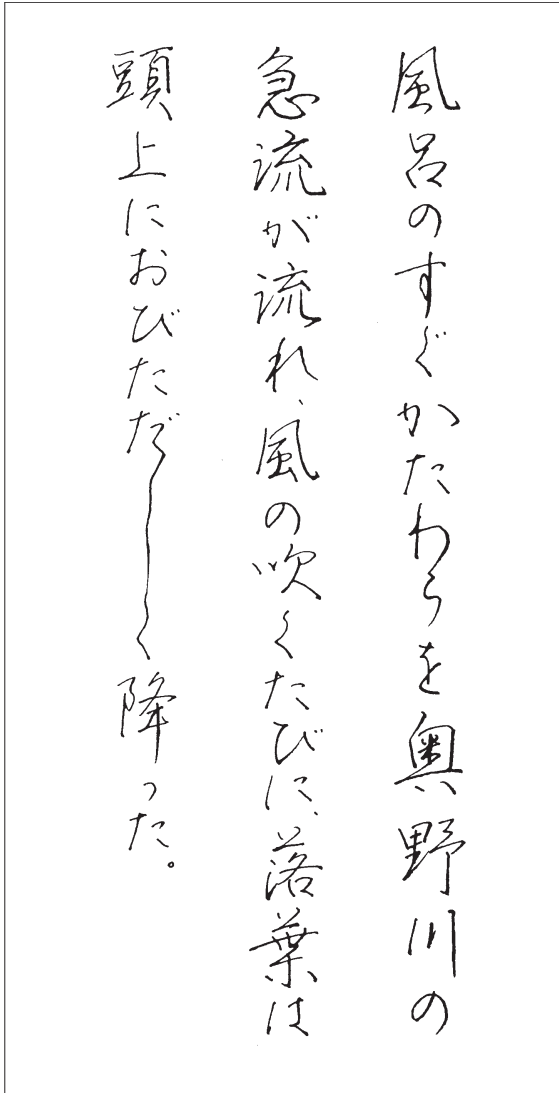 風呂のすぐかたわらを奥野川の
急流が流れ、風の吹くたびに、落葉は
頭上におびただしく降った。